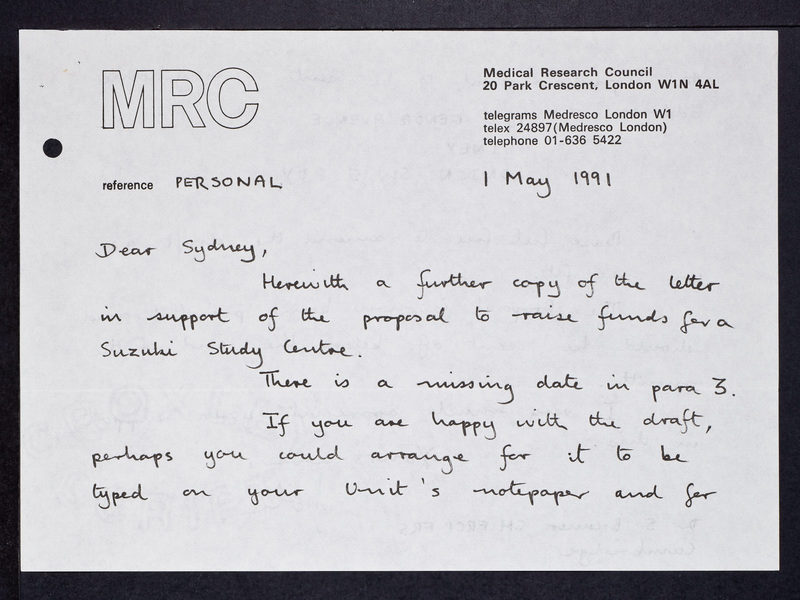 MRC
Medical Research Council
20 Park Crescent, London W1N 4AL
telegrams Medresco London W1
telex 24897(Medresco London)
telephone 01-636 5422
reference PERSONAL
1 May 1991
Dear Sydney,
Herewith a further copy of the letter
in support of the proposal to raise funds for a
Suzuki Study Centre.
There is a missing date in para 3.
If you are happy with the draft,
perhaps you could arrange for it to be
typed on your Unit's notepaper and for